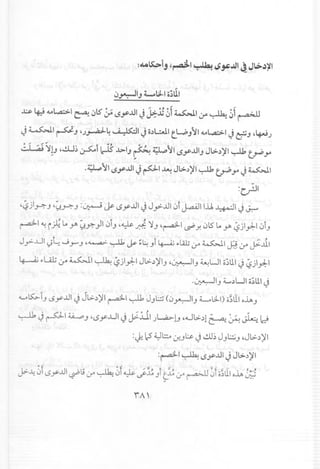 الإدخال في الدعوى بطلب الخصم، وأحكامه:
المادة الخامسة والسبعون
للخصم أن يطلب من المحكمة أن تُدخِل في الدعوى مَن كان يصح اختصامه فيها عند
رفعها، وتتبع في اختصامه الأوضاع المعتادة في التكليف بالحضور، وتحكم المحكمة في
موضوع طلب الإدخال والدعوى الأصلية بحكم واحد كلما أمكن ذلك، وإلا فصلت
المحكمة في موضوع طلب الإدخال بعد الحكم في الدعوى الأصلية.
الشرح:
سبق في التمهيد لهذا الفصل أن الدخول في الدعوى على قسمين: وجوبي، وجوازي،
وأن الجوازي ما كان برضى الخصم، ولا يجبر عليه، وأن الوجوبي هو ما يلزم به الخصم
المدخل من قبل المحكمة من تلقاء نفسها أو بناء على طلب خصمه، وسوف يأتي الدخول
الجوازي في المادة السابعة والسبعين، والإدخال الوجوبي بطلب من المحكمة من تلقاء نفسها
في المادة السادسة والسبعين.
وهذه المادة (الخامسة والسبعون) تتناول طلب الخصم الإدخال في الدعوى وأحكامه
فيما يتعلق بمن يصح إدخاله، وإحضار المُدخَل في الدعوى، وصفة الحكم في طلب
الإدخال، ونتناول ذلك في عناوين متتالية كما يلي:
الإدخال في الدعوى بطلب الخصم:
تُبيّن هذه المادة أن للخصم من مُدَّعٍ أو مُدَّعى عليه أن يطلب من قاضي الدعوى أن يدخل
٣٨١